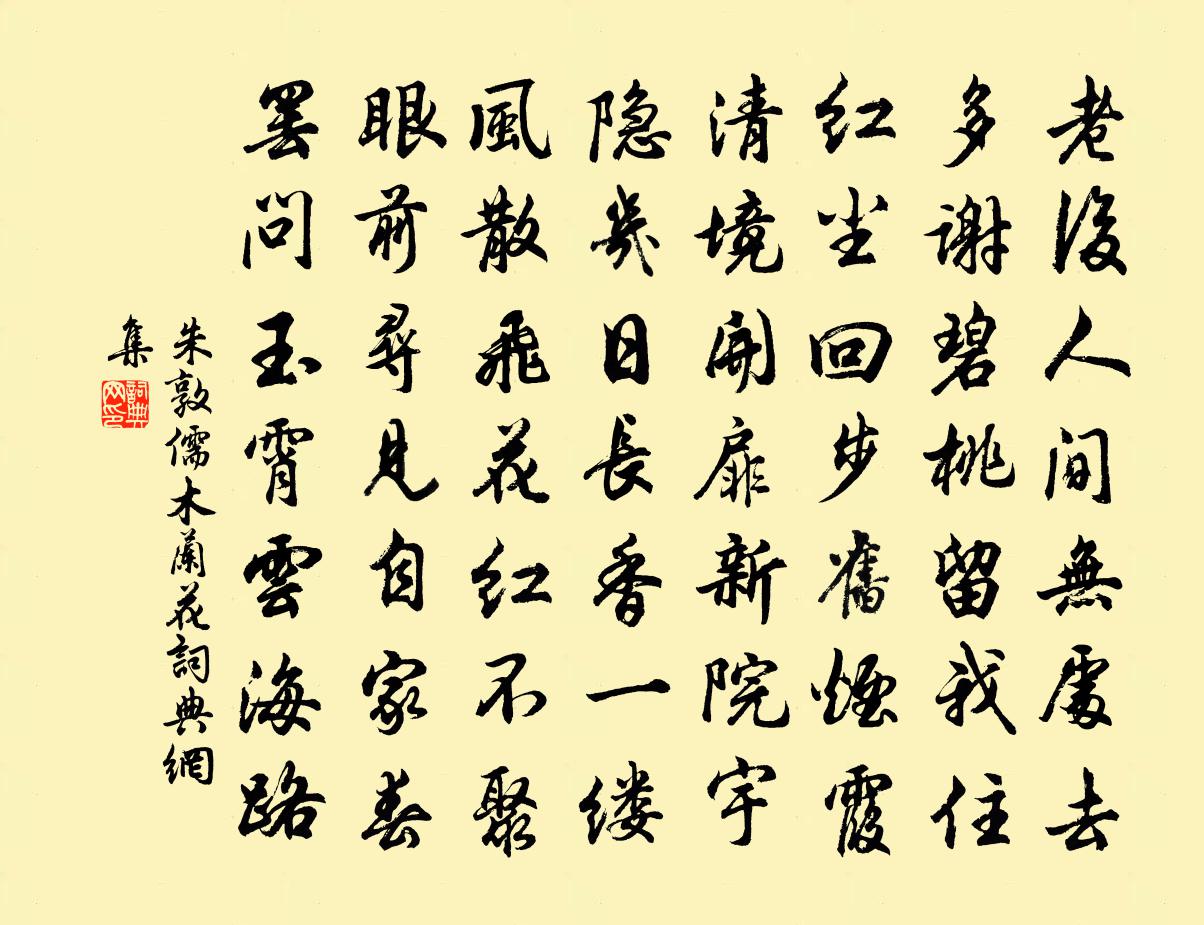 老後人間無處去
多謝碧桃留我住
紅塵回步舊煙霞
清境開扉新院宇
隱幾日長香一縷
風散飛花紅不聚
眼前尋見自家春
罷問玉霄雲海路
朱敦儒木蘭花詞典網
集
詞典網印